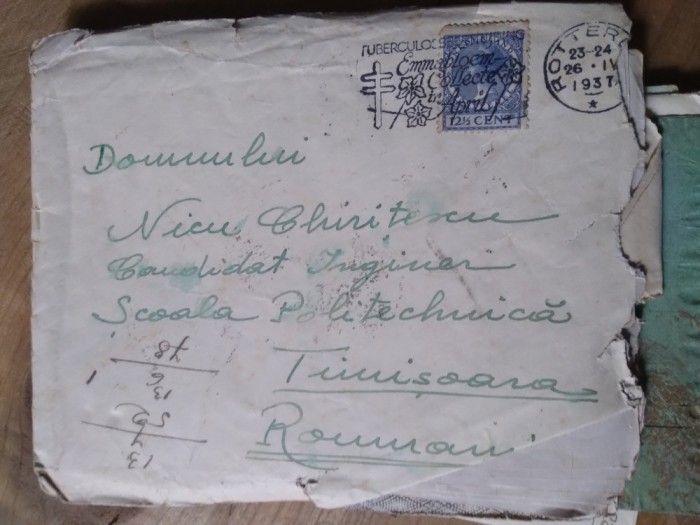 TUBERCULOSE
Emmabloem
Collecte
in April
12½ CENT
ROTTER
23-24
26 · IV
1937
Domnului
Nicu Chiritescu
Candidat Inginer
Scoala Politechnică
Timișoara
Romani
78
13
6
1
13